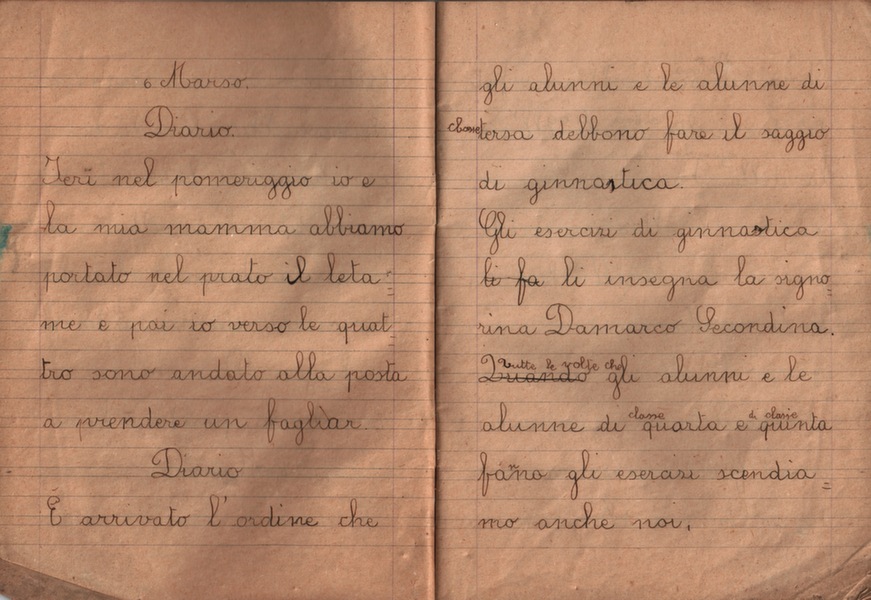 6 Marso.
Diario.
Ieri nel pomeriggio io e
la mia mamma abbiamo
portato nel prato il leta=
me e poi io verso le quat=
tro sono andato alla posta
a prendere un fagliàr.
Diario
È arrivato l'ordine che
gli alunni e le alunne di
classe tersa debbono fare il saggio
di ginnastica.
Gli esercizi di ginnastica
li fa li insegna la signo=
rina Damarco Secondina.
tutte le volte che
Quando gli alunni e le
classe di classe
alunne di quarta e quinta
fanno gli esercisi scendia=
mo anche noi.